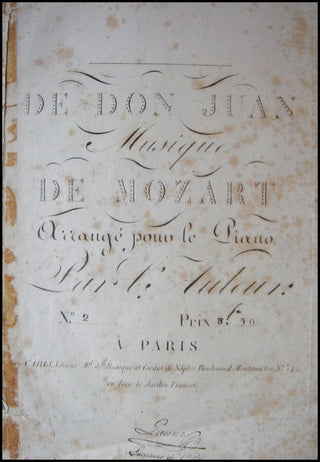 DE DON JUAN
Musique
DE MOZART
Arrangé pour le Piano
Par
N.º 2 Prix
À PARIS
Editeur M.d de Musique et Cordes de Naples Boulevard Montmartre N.º
en face le Jardin Frascati